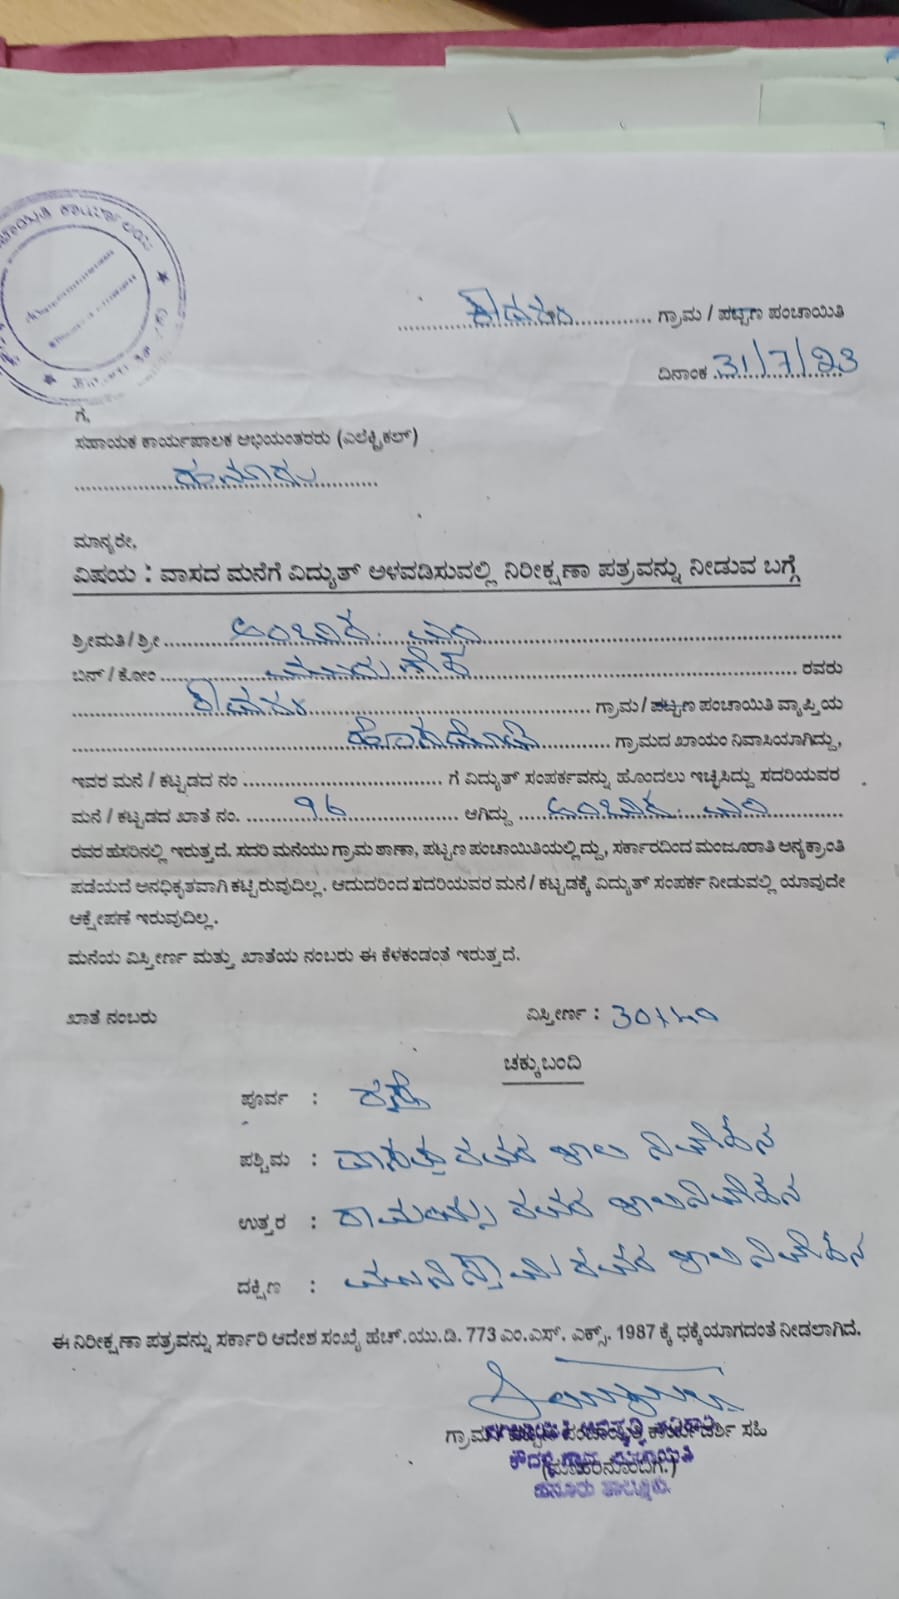 ಕಾರ್ಯಾಲಯ
ಗ್ರಾಮ / ಪಟ್ಟಣ ಪಂಚಾಯಿತಿ
ದಿನಾಂಕ 31/7/23
ಗೆ,
ಸಹಾಯಕ ಕಾರ್ಯಪಾಲಕ ಅಭಿಯಂತರರು (ಎಲೆಕ್ಟ್ರಿಕಲ್)
ಮಾನ್ಯರೇ,
ವಿಷಯ : ವಾಸದ ಮನೆಗೆ ವಿದ್ಯುತ್ ಅಳವಡಿಸುವಲ್ಲಿ ನಿರೀಕ್ಷಣಾ ಪತ್ರವನ್ನು ನೀಡುವ ಬಗ್ಗೆ
ಶ್ರೀಮತಿ / ಶ್ರೀ ಅಂಬಿಕ. ಎಂ
ಬಿನ್ / ಕೋಂ ರವರು
ಗ್ರಾಮ / ಪಟ್ಟಣ ಪಂಚಾಯಿತಿ ವ್ಯಾಪ್ತಿಯ
ಗ್ರಾಮದ ಖಾಯಂ ನಿವಾಸಿಯಾಗಿದ್ದು,
ಇವರ ಮನೆ / ಕಟ್ಟಡದ ನಂ ಗೆ ವಿದ್ಯುತ್ ಸಂಪರ್ಕವನ್ನು ಹೊಂದಲು ಇಚ್ಛಿಸಿದ್ದು ಸದರಿಯವರ
ಮನೆ / ಕಟ್ಟಡದ ಖಾತೆ ನಂ. ಆಗಿದ್ದು ಅಂಬಿಕ. ಎಂ
ರವರ ಹೆಸರಿನಲ್ಲಿ ಇರುತ್ತದೆ. ಸದರಿ ಮನೆಯು ಗ್ರಾಮ ಠಾಣಾ, ಪಟ್ಟಣ ಪಂಚಾಯಿತಿಯಲ್ಲಿದ್ದು, ಸರ್ಕಾರದಿಂದ ಮಂಜೂರಾತಿ ಅನ್ಯಕ್ರಾಂತಿ
ಪಡೆಯದೆ ಅನಧಿಕೃತವಾಗಿ ಕಟ್ಟಿರುವುದಿಲ್ಲ. ಆದುದರಿಂದ ಸದರಿಯವರ ಮನೆ / ಕಟ್ಟಡಕ್ಕೆ ವಿದ್ಯುತ್ ಸಂಪರ್ಕ ನೀಡುವಲ್ಲಿ ಯಾವುದೇ
ಆಕ್ಷೇಪಣೆ ಇರುವುದಿಲ್ಲ.
ಮನೆಯ ವಿಸ್ತೀರ್ಣ ಮತ್ತು ಖಾತೆಯ ನಂಬರು ಈ ಕೆಳಕಂಡಂತೆ ಇರುತ್ತದೆ.
ಖಾತೆ ನಂಬರು ವಿಸ್ತೀರ್ಣ : 30x40
ಚಕ್ಕುಬಂದಿ
ಪೂರ್ವ : ರಸ್ತೆ
ಪಶ್ಚಿಮ : ರವರ ಖಾಲಿ ನಿವೇಶನ
ಉತ್ತರ : ರಾಮಯ್ಯ ರವರ ಖಾಲಿ ನಿವೇಶನ
ದಕ್ಷಿಣ : ರವರ ಖಾಲಿ ನಿವೇಶನ
ಈ ನಿರೀಕ್ಷಣಾ ಪತ್ರವನ್ನು ಸರ್ಕಾರಿ ಆದೇಶ ಸಂಖ್ಯೆ ಹೆಚ್.ಯು.ಡಿ. 773 ಎಂ.ಎಸ್. ಎಕ್ಸ್. 1987 ಕ್ಕೆ ಧಕ್ಕೆಯಾಗದಂತೆ ನೀಡಲಾಗಿದೆ.
ಗ್ರಾಮ ಸಹಿ
ಹನೂರು ತಾಲ್ಲೂಕು.